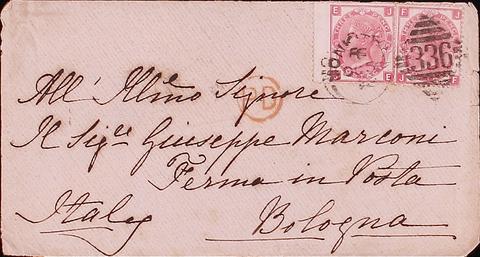 THREE PENCE
336
PD
All' Illmo Signore
Il Sigre Giuseppe Marconi
Ferma in Posta
Italy Bologna